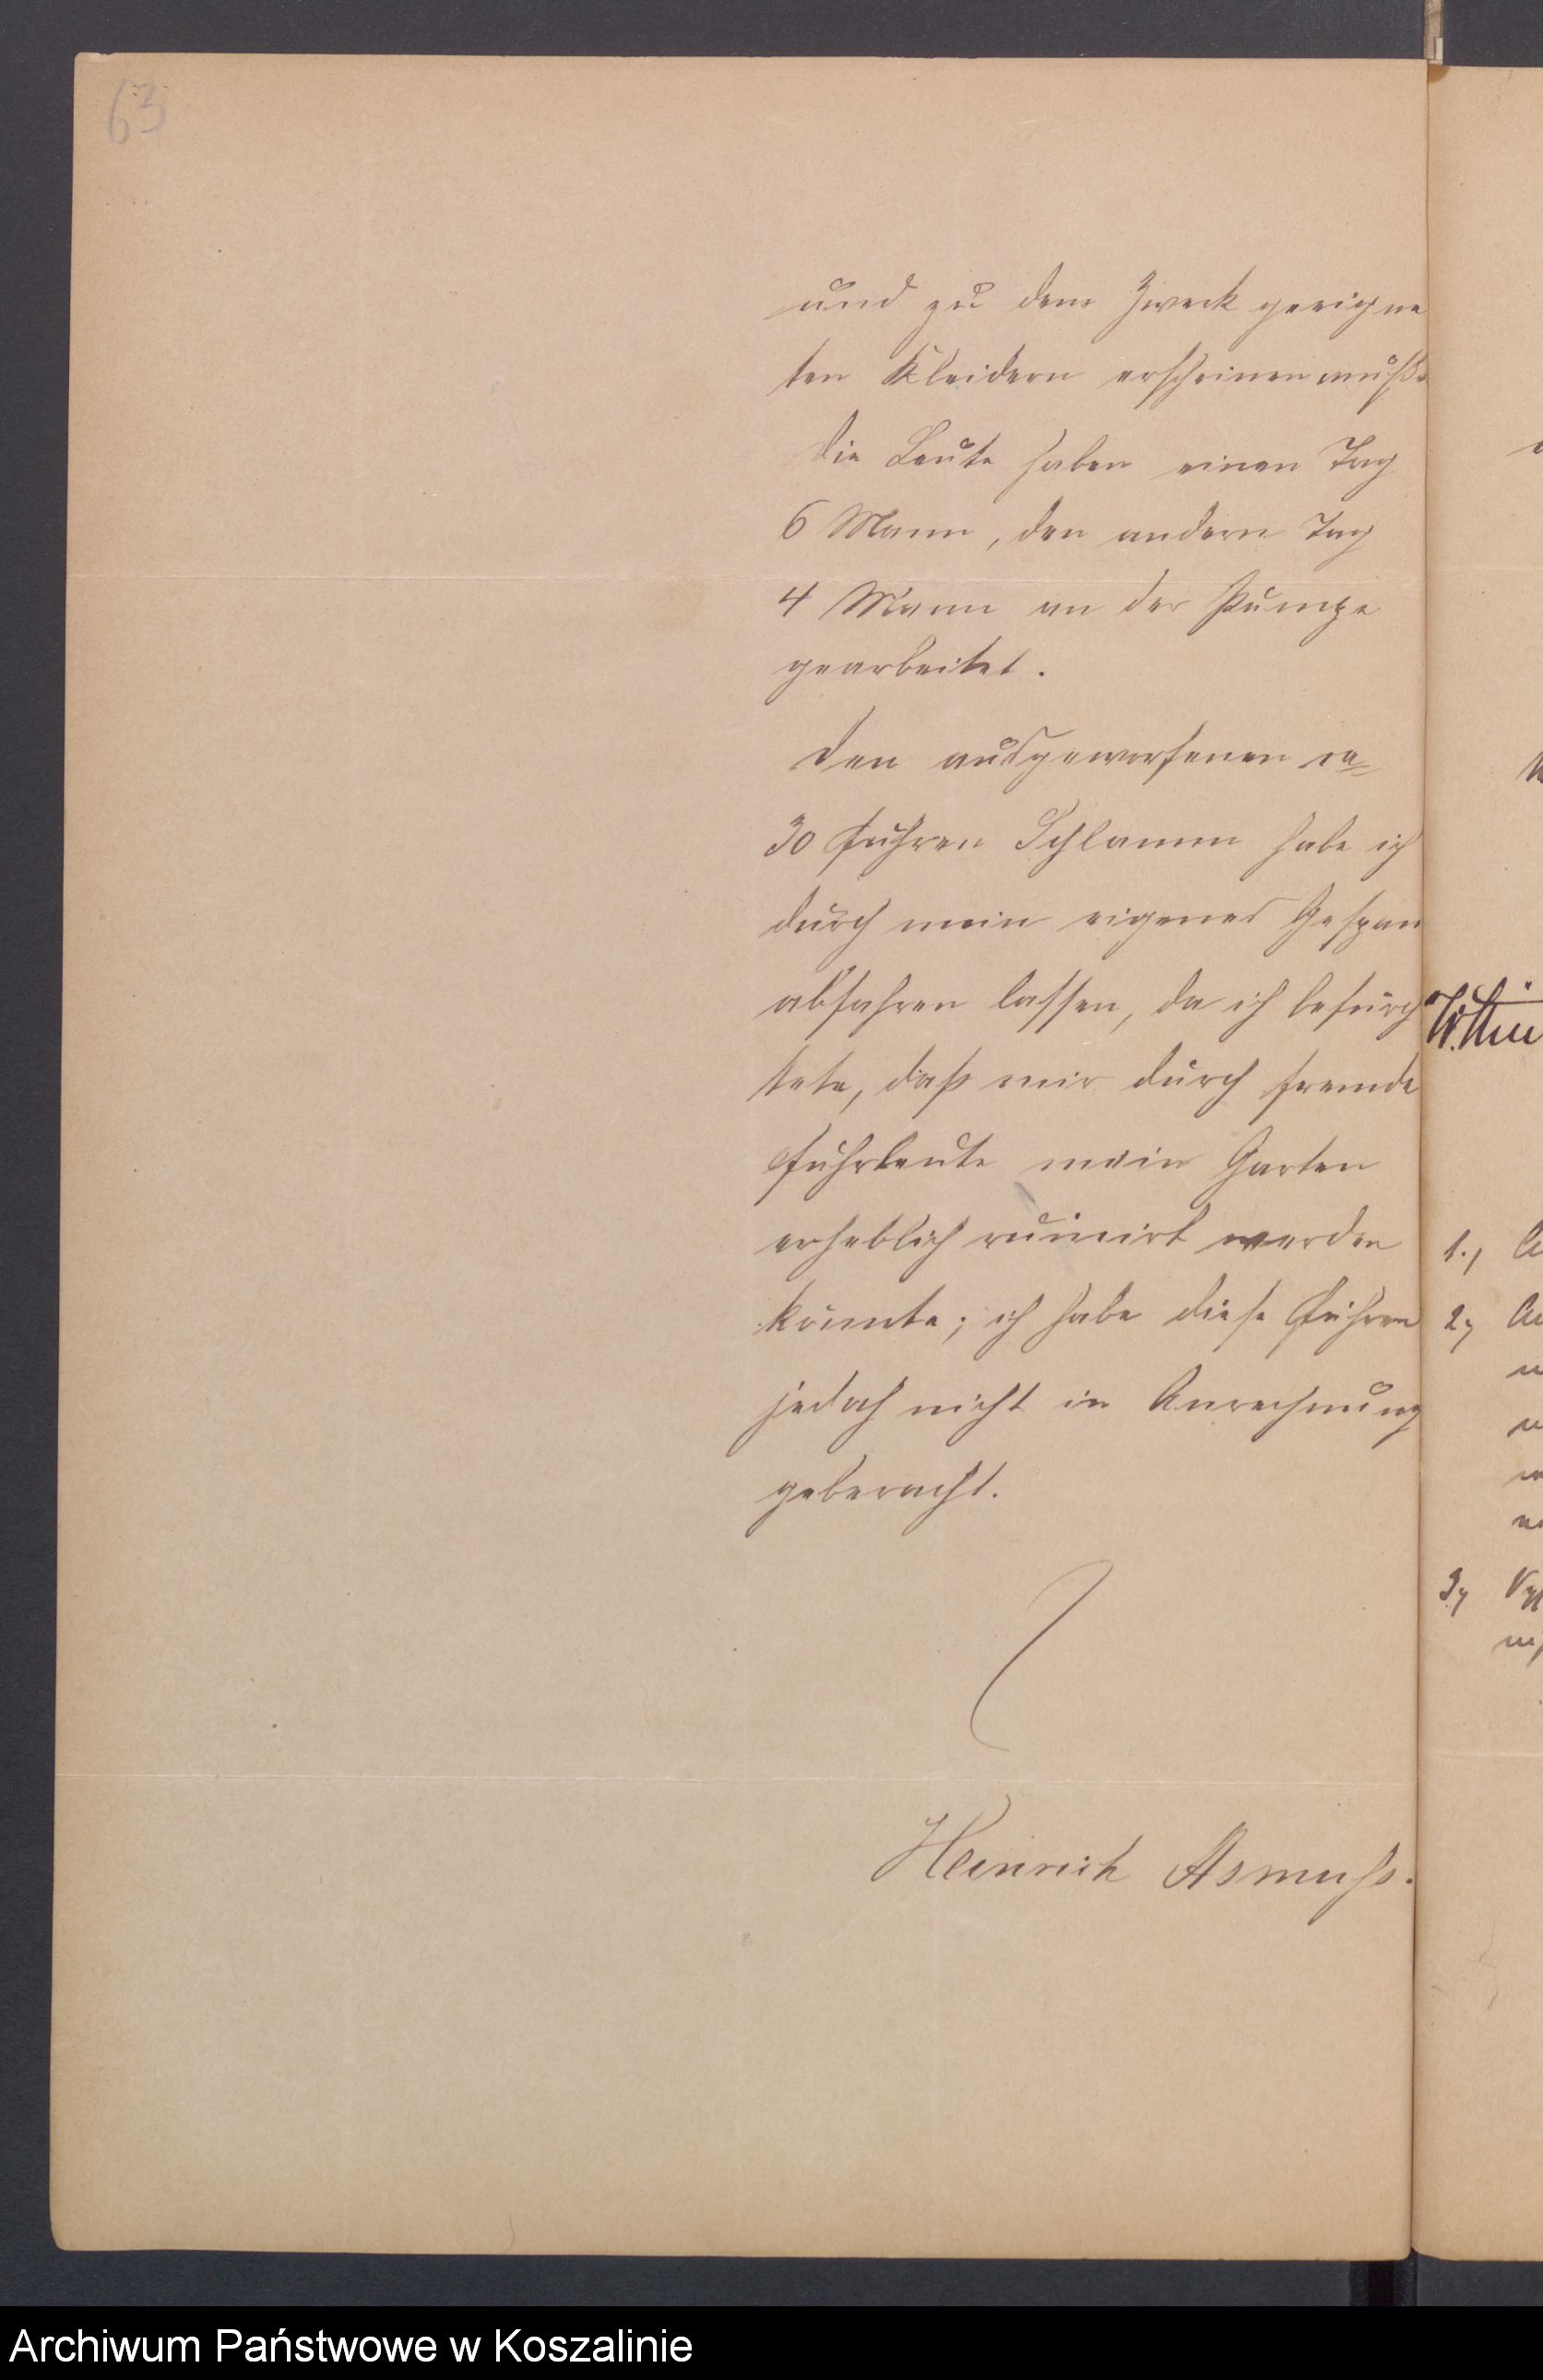 63
und zu dem Zweck geeigne
ten Kleidern erscheinen mußte
Die Leute haben einen Tag
6 Mann, den andern Tag
4 Mann an der Pumpe
gearbeitet.
Den ausgeworfenen ca
30 Fuhren Schlamm habe ich
durch mein eigenes Gespan
abfahren lassen, da ich befürch
tete, daß mir durch fremde
Fuhrleute mein Garten
erheblich ruinirt werden
könnte; ich habe diese Fuhren
jedoch nicht in Anrechnung
geberacht.
Heinrich Asmuss.
1.)
2)
3)
Archiwum Państwowe w Koszalinie